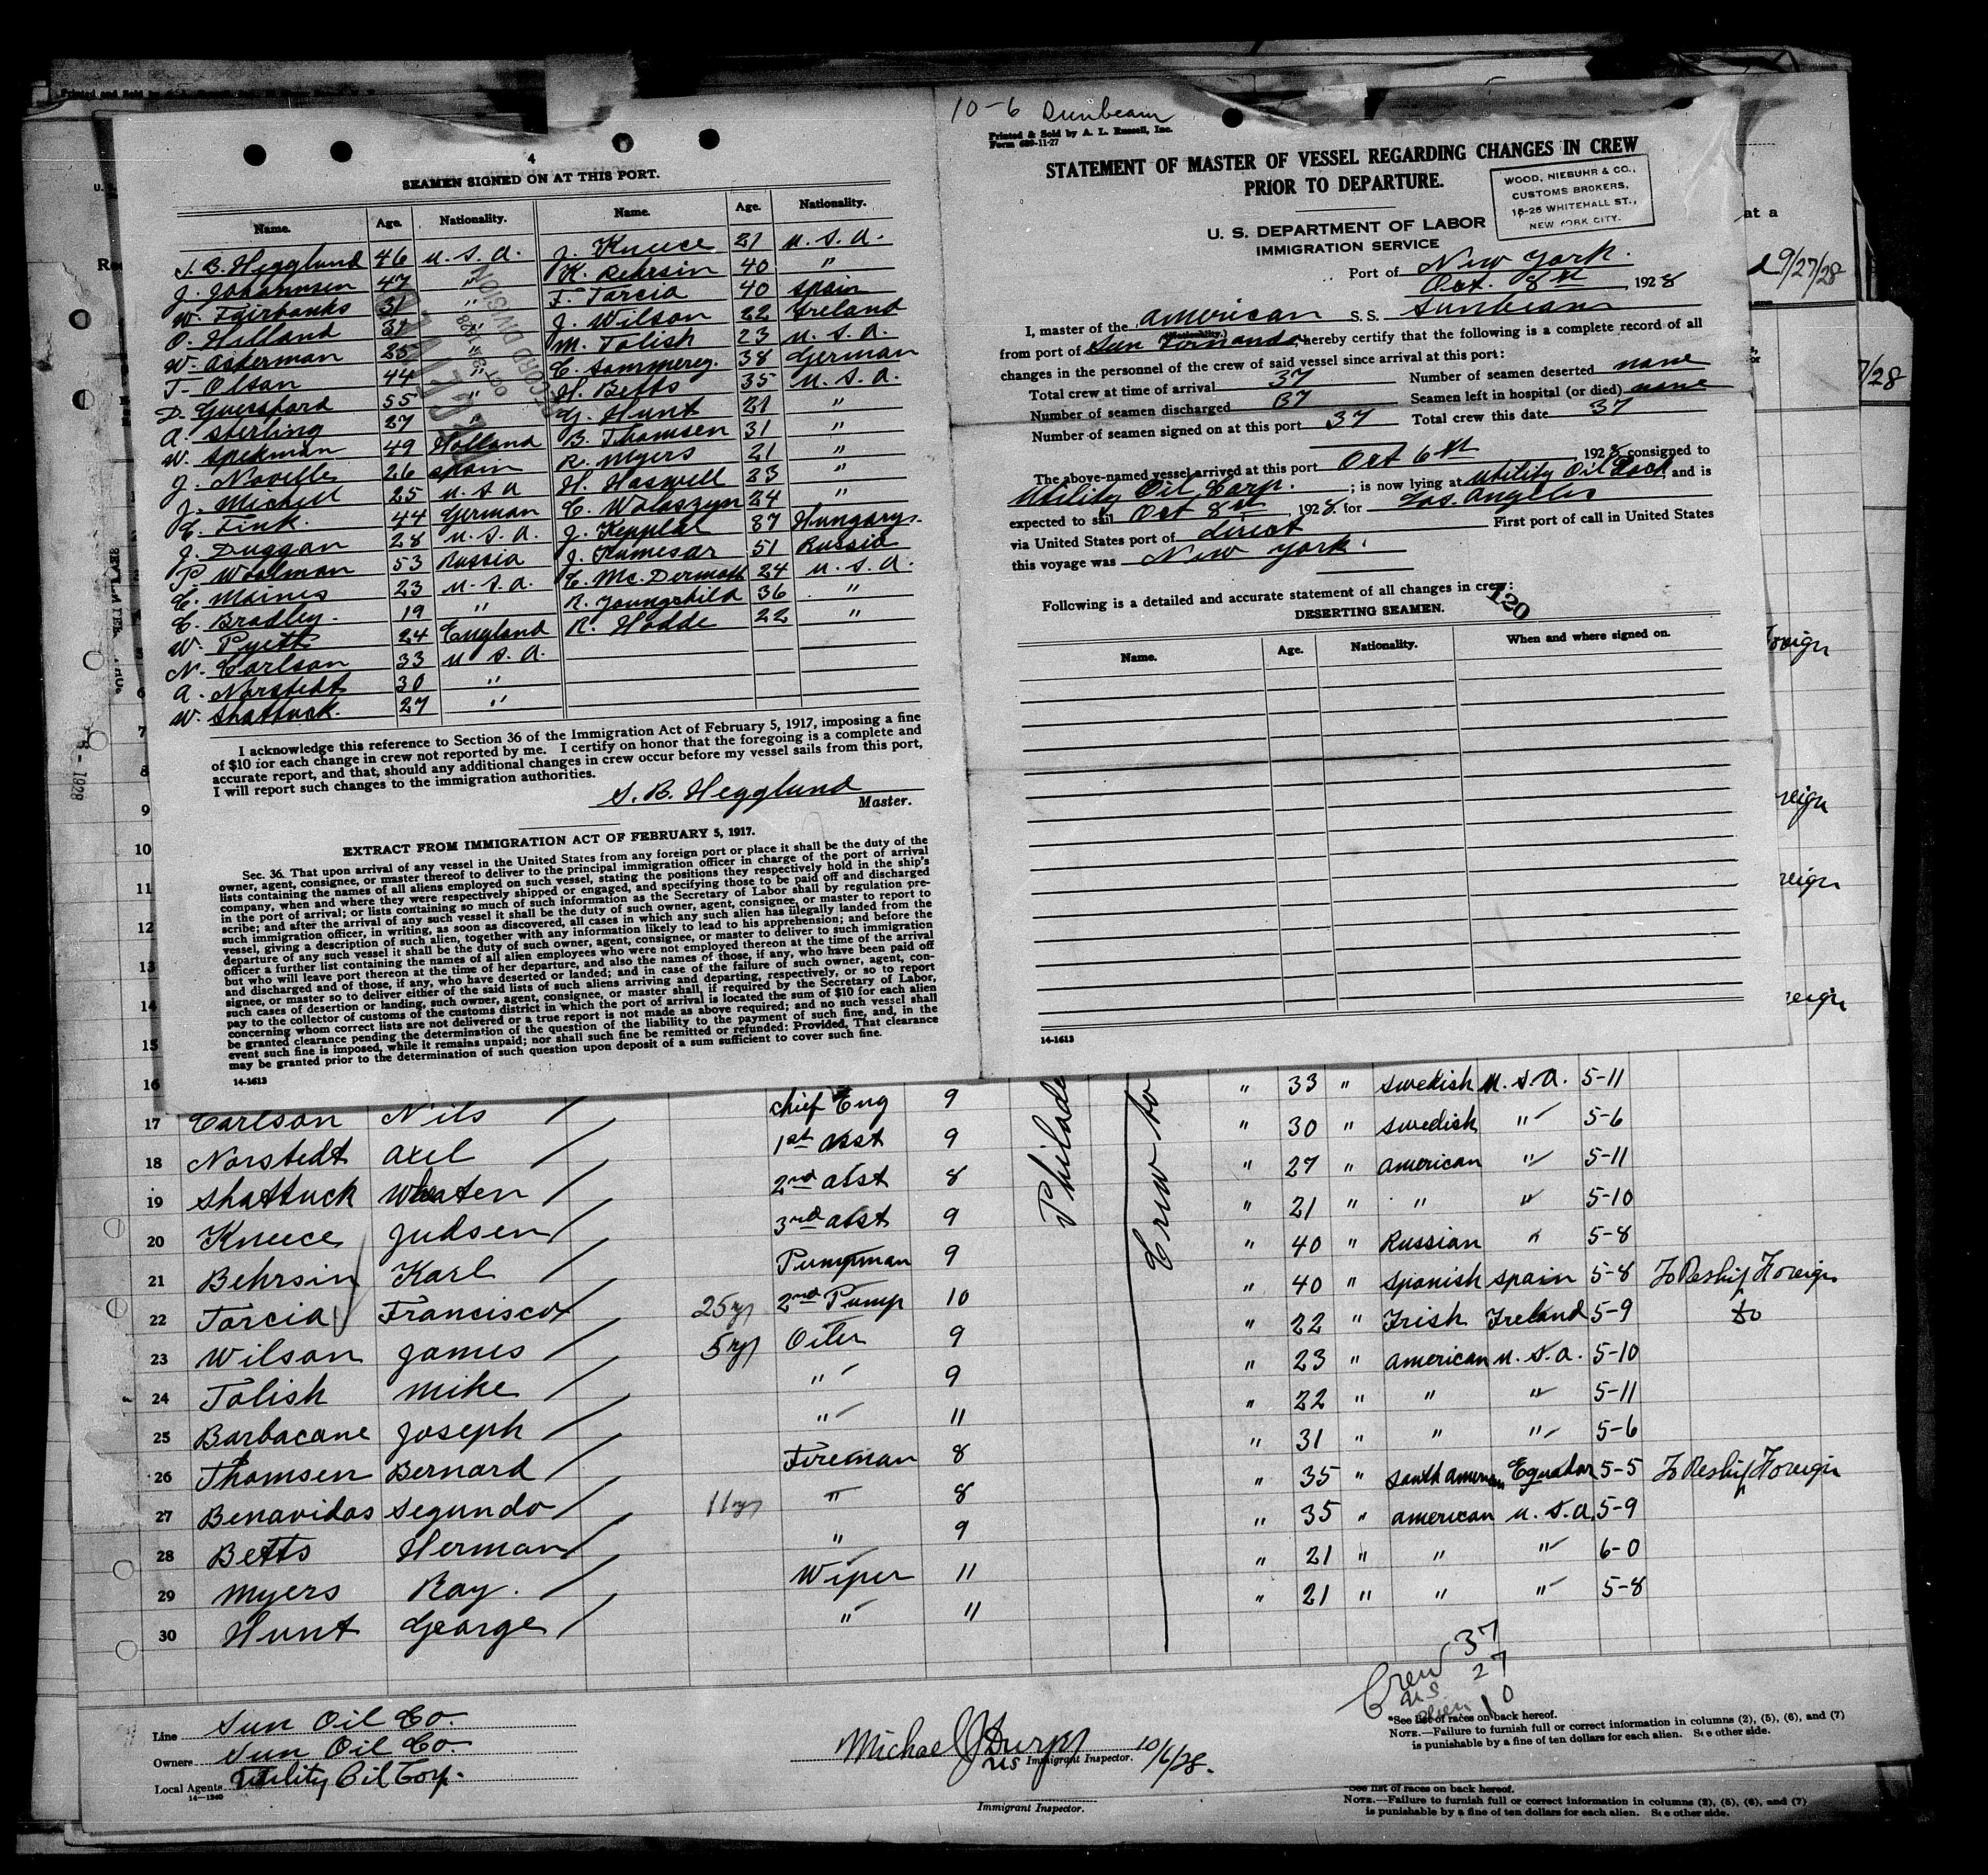 4
SEAMEN SIGNED ON AT THIS PORT.
Name. Age. Nationality. Name. Age. Nationality.
S. B. Hegglund 46 U.S.A. J. Kneece 21 U.S.A.
J. Johannsen 47 " K. Behrsin 40 "
W. Fairbanks 31 " F. Tarcia 40 Spain
O. Hilland 37 " J. Wilson 22 Ireland
W. Osterman 25 " M. Tolish 23 U.S.A.
T. Olson 44 " C. Sommereg. 38 German
D. Guessford 55 " H. Betts 35 U.S.A.
A. Sterling 27 " G. Hunt 21 "
W. Spekman 49 Holland B. Thomsen 31 "
J. Novelle 26 Spain R. Myers 21 "
J. Michell 25 U.S.A H. Haswell 23 "
C. Fink. 44 German C. Wolaszyn 24 "
J. Duggan 28 U.S.A. J. Kepplal 37 Hungary.
P. Woolman 53 Russia J. Rumesar 51 Russia
C. Maines 23 U.S.A. C. McDermott 24 U.S.A.
C. Bradley. 19 " R. Youngchild 36 "
W. Pyett 24 England R. Hodde 22 "
N. Carlson 33 U.S.A.
A. Norstedt 30 "
W. Shattuck. 27 "
I acknowledge this reference to Section 36 of the Immigration Act of February 5, 1917, imposing a fine
of $10 for each change in crew not reported by me. I certify on honor that the foregoing is a complete and
accurate report, and that, should any additional changes in crew occur before my vessel sails from this port,
I will report such changes to the immigration authorities.
S. B. Hegglund
Master.
EXTRACT FROM IMMIGRATION ACT OF FEBRUARY 5, 1917.
Sec. 36. That upon arrival of any vessel in the United States from any foreign port or place it shall be the duty of the
owner, agent, consignee, or master thereof to deliver to the principal immigration officer in charge of the port of arrival
lists containing the names of all aliens employed on such vessel, stating the positions they respectively hold in the ship's
company, when and where they were respectively shipped or engaged, and specifying those to be paid off and discharged
in the port of arrival; or lists containing so much of such information as the Secretary of Labor shall by regulation pre-
scribe; and after the arrival of any such vessel it shall be the duty of such owner, agent, consignee, or master to report to
such immigration officer, in writing, as soon as discovered, all cases in which any such alien has illegally landed from the
vessel, giving a description of such alien, together with any information likely to lead to his apprehension; and before the
departure of any such vessel it shall be the duty of such owner, agent, consignee, or master to deliver to such immigration
officer a further list containing the names of all alien employees who were not employed thereon at the time of the arrival
but who will leave port thereon at the time of her departure, and also the names of those, if any, who have been paid off
and discharged and of those, if any, who have deserted or landed; and in case of the failure of such owner, agent, con-
signee, or master so to deliver either of the said lists of such aliens arriving and departing, respectively, or so to report
such cases of desertion or landing, such owner, agent, consignee, or master shall, if required by the Secretary of Labor,
pay to the collector of customs of the customs district in which the port of arrival is located the sum of $10 for each alien
concerning whom correct lists are not delivered or a true report is not made as above required; and no such vessel shall
be granted clearance pending the determination of the question of the liability to the payment of such fine, and, in the
event such fine is imposed, while it remains unpaid; nor shall such fine be remitted or refunded: Provided, That clearance
may be granted prior to the determination of such question upon deposit of a sum sufficient to cover such fine.
14-1613
10-6 Sunbeam
Printed & Sold by A. L. Russell, Inc.
Form 689-11-27
STATEMENT OF MASTER OF VESSEL REGARDING CHANGES IN CREW
PRIOR TO DEPARTURE.
WOOD, NIEBUHR & CO.,
CUSTOMS BROKERS,
16-26 WHITEHALL ST.,
NEW YORK CITY.
U. S. DEPARTMENT OF LABOR
IMMIGRATION SERVICE
Port of New York.
Oct. 8th, 1928
I, master of the American S. S. Sunbeam
(Nationality.)
from port of San Fernando, hereby certify that the following is a complete record of all
changes in the personnel of the crew of said vessel since arrival at this port:
Total crew at time of arrival 37 Number of seamen deserted none
Number of seamen discharged 37 Seamen left in hospital (or died) none
Number of seamen signed on at this port 37 Total crew this date 37
The above-named vessel arrived at this port Oct 6th, 1928 consigned to
Utility Oil Corp.; is now lying at Utility Oil Dock, and is
expected to sail Oct 8th, 1928. for Los. Angeles
via United States port of direct First port of call in United States
this voyage was New York.
Following is a detailed and accurate statement of all changes in crew:
120
DESERTING SEAMEN.
Name. Age. Nationality. When and where signed on.
14-1613
at a
9/27/28
7/28
16 chief Eng 9 " 33 " Swedish U.S.A. 5-11
17 Carlson Nils / 1st asst 9 " 30 " Swedish " 5-6
18 Norstedt Axel / 2nd asst 8 " 27 " American " 5-11
19 Shattuck / 3rd asst 9 " 21 " " " 5-10
20 Kneece Judsen / Pumpman 9 " 40 " Russian " 5-8
21 Behrsin Karl / 25 yr 2nd Pump 10 " 40 " Spanish Spain 5-8 To Reship Foreign
22 Tarcia Francisco / 5 yr Oiler 9 " 22 " Irish Ireland 5-9 do
23 Wilson James / " 9 " 23 " American U.S.A. 5-10
24 Tolish Mike / " 11 " 22 " " " 5-11
25 Barbacane Joseph / Fireman 8 " 31 " " " 5-6
26 Thomsen Bernard / 11 yr " 8 " 35 " South American Equador 5-5 To Reship Foreign
27 Benavidas Segundo / " 9 " 35 " American U.S.A. 5-9
28 Betts Herman / Wiper 11 " 21 " " " 6-0
29 Myers Ray. / " 11 " 21 " " " 5-8
30 Hunt George /
Crew to
Crew 37
US 27
Alien 10
Line Sun Oil Co.
Owners Sun Oil Co.
Local Agents Utility Oil Corp.
14—1240
Michael J. 10/6/28.
US Immigrant Inspector.
*See list of races on back hereof.
NOTE.—Failure to furnish full or correct information in columns (2), (5), (6), and (7)
is punishable by a fine of ten dollars for each alien. See other side.
Immigrant Inspector.
*See list of races on back hereof.
NOTE.—Failure to furnish full or correct information in columns (2), (5), (6), and (7)
is punishable by a fine of ten dollars for each alien. See other side.